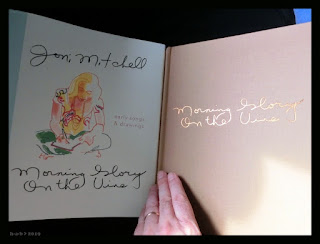 Joni Mitchell
early songs
& drawings
Morning Glory
On the Vine
Morning Glory
On the Vine